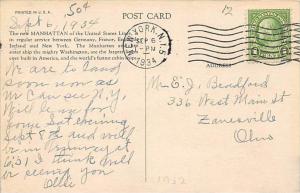 PRINTED IN U.S.A.
50¢
12
POST CARD
Sept 6, 1934
The new MANHATTAN of the United States Lines
in regular service between Germany, France, England
Ireland and New York. The Manhattan and
sister ship Washington, are the largest
ever built in America, and the world's fastest cabin
NEW YORK, N.Y.
SEP 6
PM
1934
1 CENT 1
ADDRESS
We are to land
soon now and
We can see N.Y.
Will be in
some Sat evening
Sept 8th and will
be in
6:31 I think will
be seeing you
Ollie
Mr E. J. Bradford
336 West Main St
Zanesville
Ohio
1932